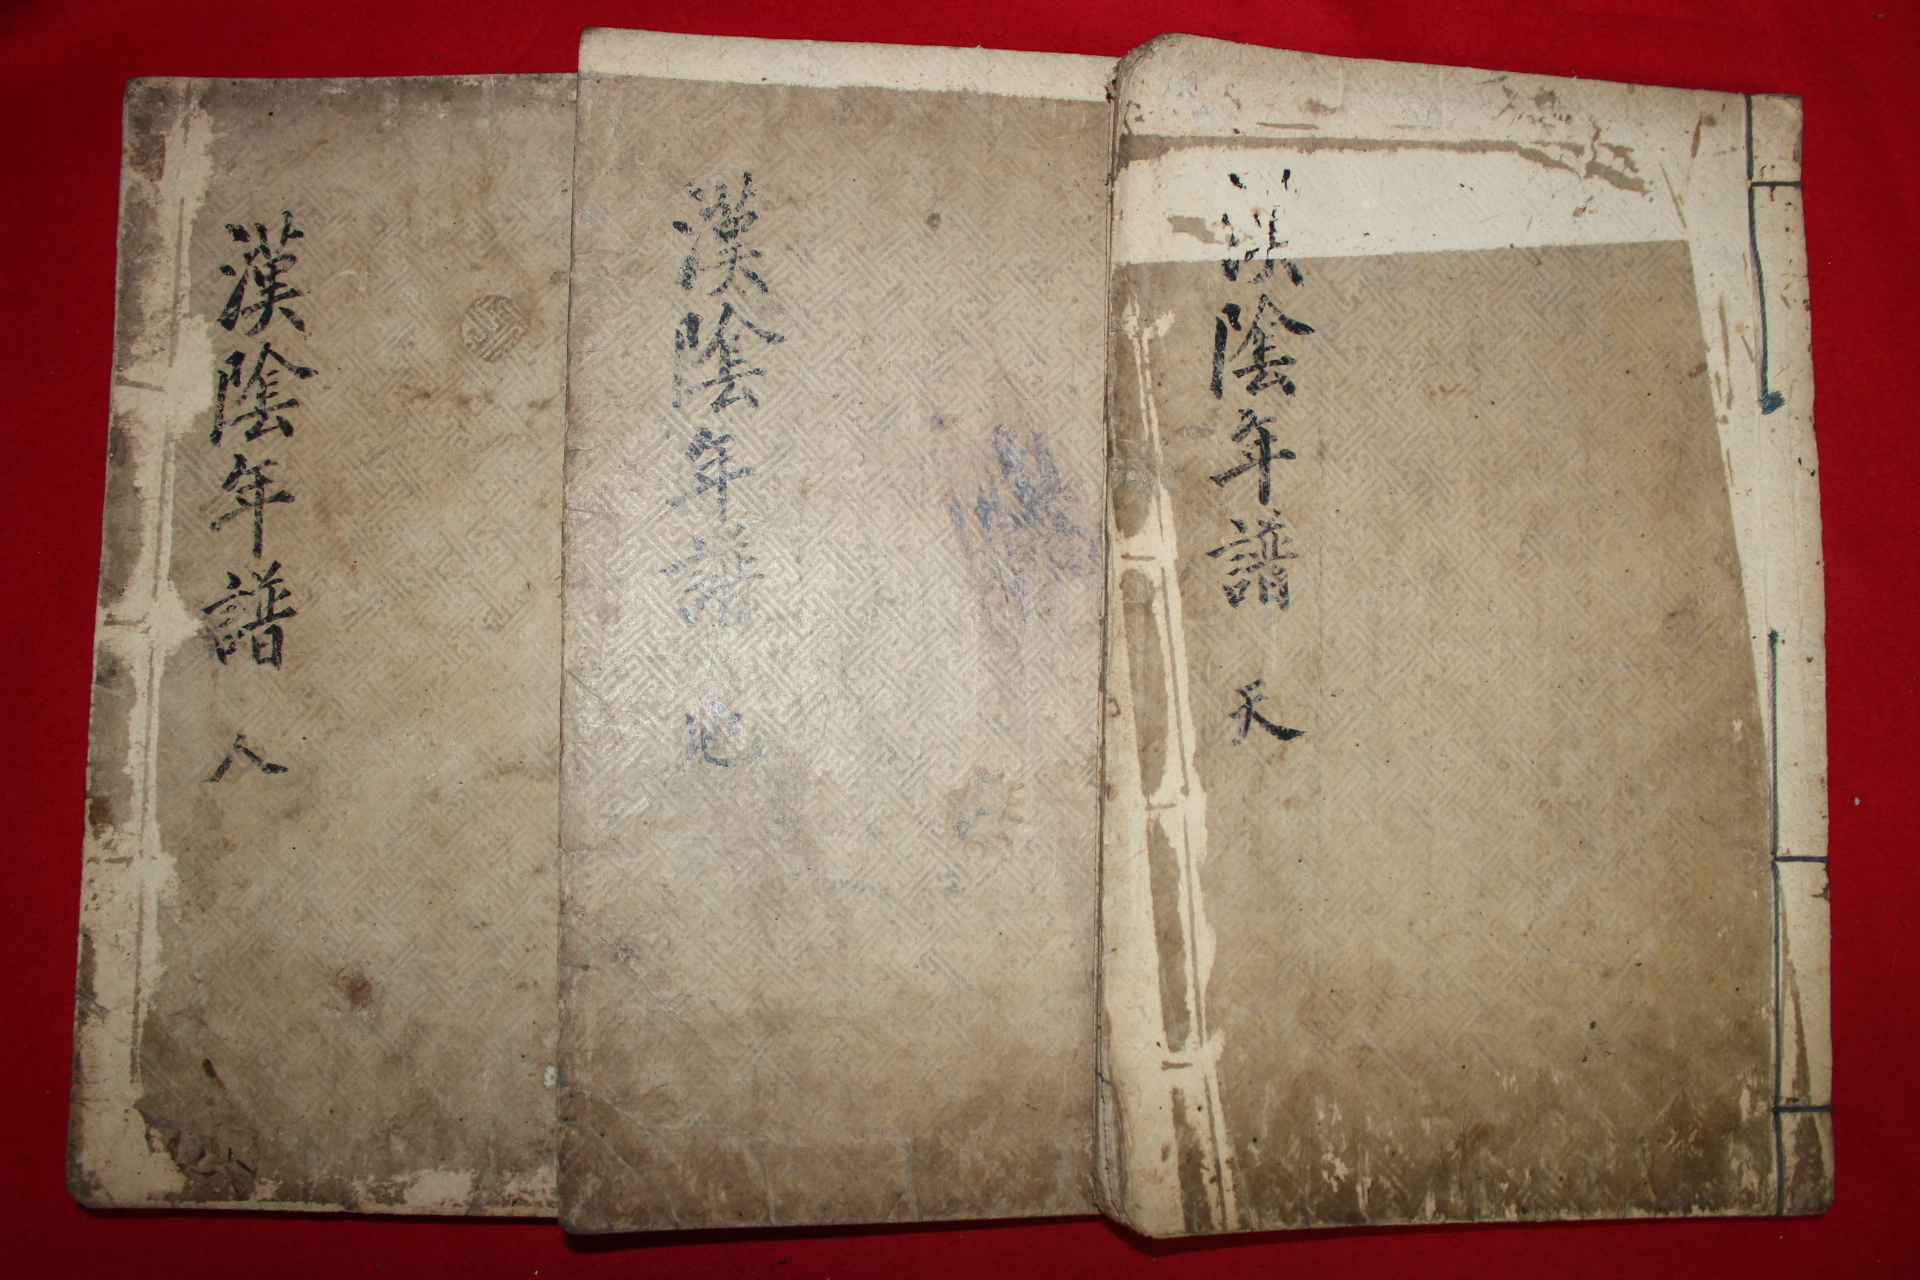 漢陰年譜 天
漢陰年譜 地
漢陰年譜 人